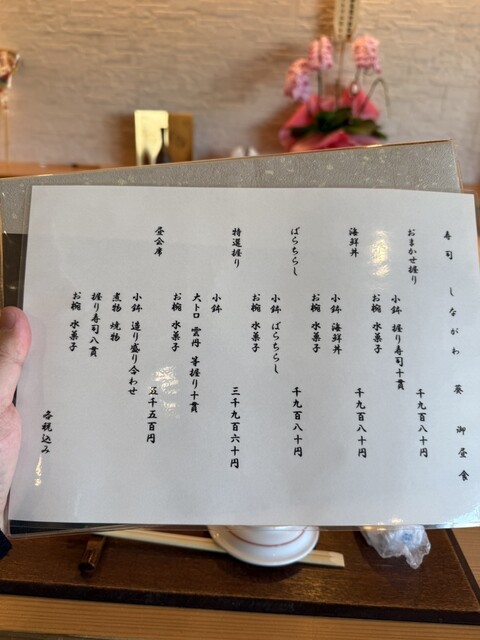 寿司 しながわ 葵 御昼食
おまかせ握り
小鉢 握り寿司十貫
お椀 水菓子
千九百八十円
海鮮丼
小鉢 海鮮丼
お椀 水菓子
千九百八十円
ばらちらし
小鉢 ばらちらし
お椀 水菓子
千九百八十円
特選握り
小鉢
大トロ 雲丹 等握り十貫
お椀 水菓子
三千九百六十円
昼会席
小鉢 造り盛り合わせ
煮物 焼物
握り寿司八貫
お椀 水菓子
五千五百円
各税込み